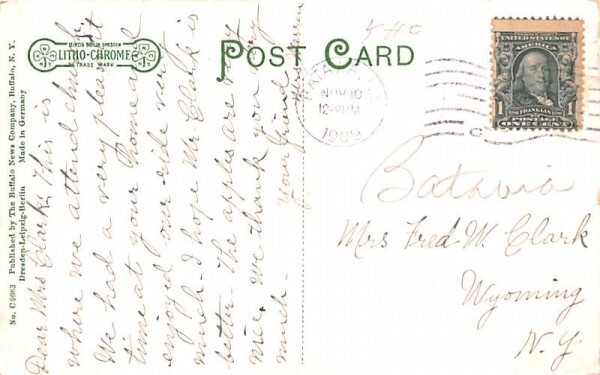 No. C9663 Published by The Buffalo News Company, Buffalo, N. Y.
Dresden-Leipzig-Berlin Made in Germany
LITHO-CHROME
TRADE MARK
POST CARD
NOV 10
1908
UNITED STATES OF
AMERICA
FRANKLIN
1 POSTAGE 1
ONE CENT
Dear Mrs Clark; This is
where we attend church
We had a very pleasant
time at your home and
enjoyed our ride very
much. I hope Mr Clark is
better. The apples are very
nice, we thank you very
much.
Your friend
Batavia
Mrs Fred W. Clark
Wyoming
N.Y.